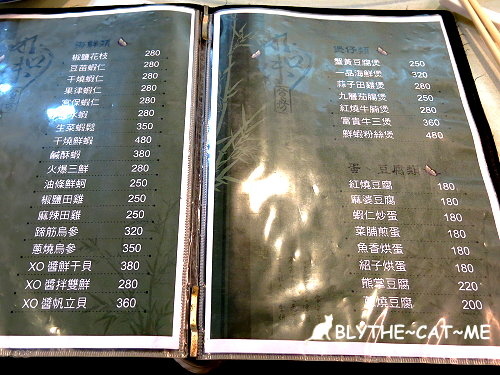 海鮮類
椒鹽花枝 280
豆苗蝦仁 280
干燒蝦仁 280
果律蝦仁 280
宮保蝦仁 280
280
生菜蝦鬆 350
干燒鮮蝦 480
鹹酥蝦 380
火爆三鮮 280
油燥鮮蚵 250
椒鹽田雞 250
麻辣田雞 250
蹄筋烏參 320
蔥燒烏參 350
XO 醬鮮干貝 380
XO 醬拌雙鮮 280
XO 醬帆立貝 360
煲仔類
蟹黃豆腐煲 250
一品海鮮煲 320
蒜子田雞煲 280
九層茄腸煲 250
紅燒牛腩煲 280
富貴牛三煲 360
鮮蝦粉絲煲 480
蛋 豆腐類
紅燒豆腐 180
麻婆豆腐 180
蝦仁炒蛋 180
菜脯煎蛋 180
魚香烘蛋 180
紹子烘蛋 180
熊掌豆腐 220
燒豆腐 200
BLYTHE~CAT~ME